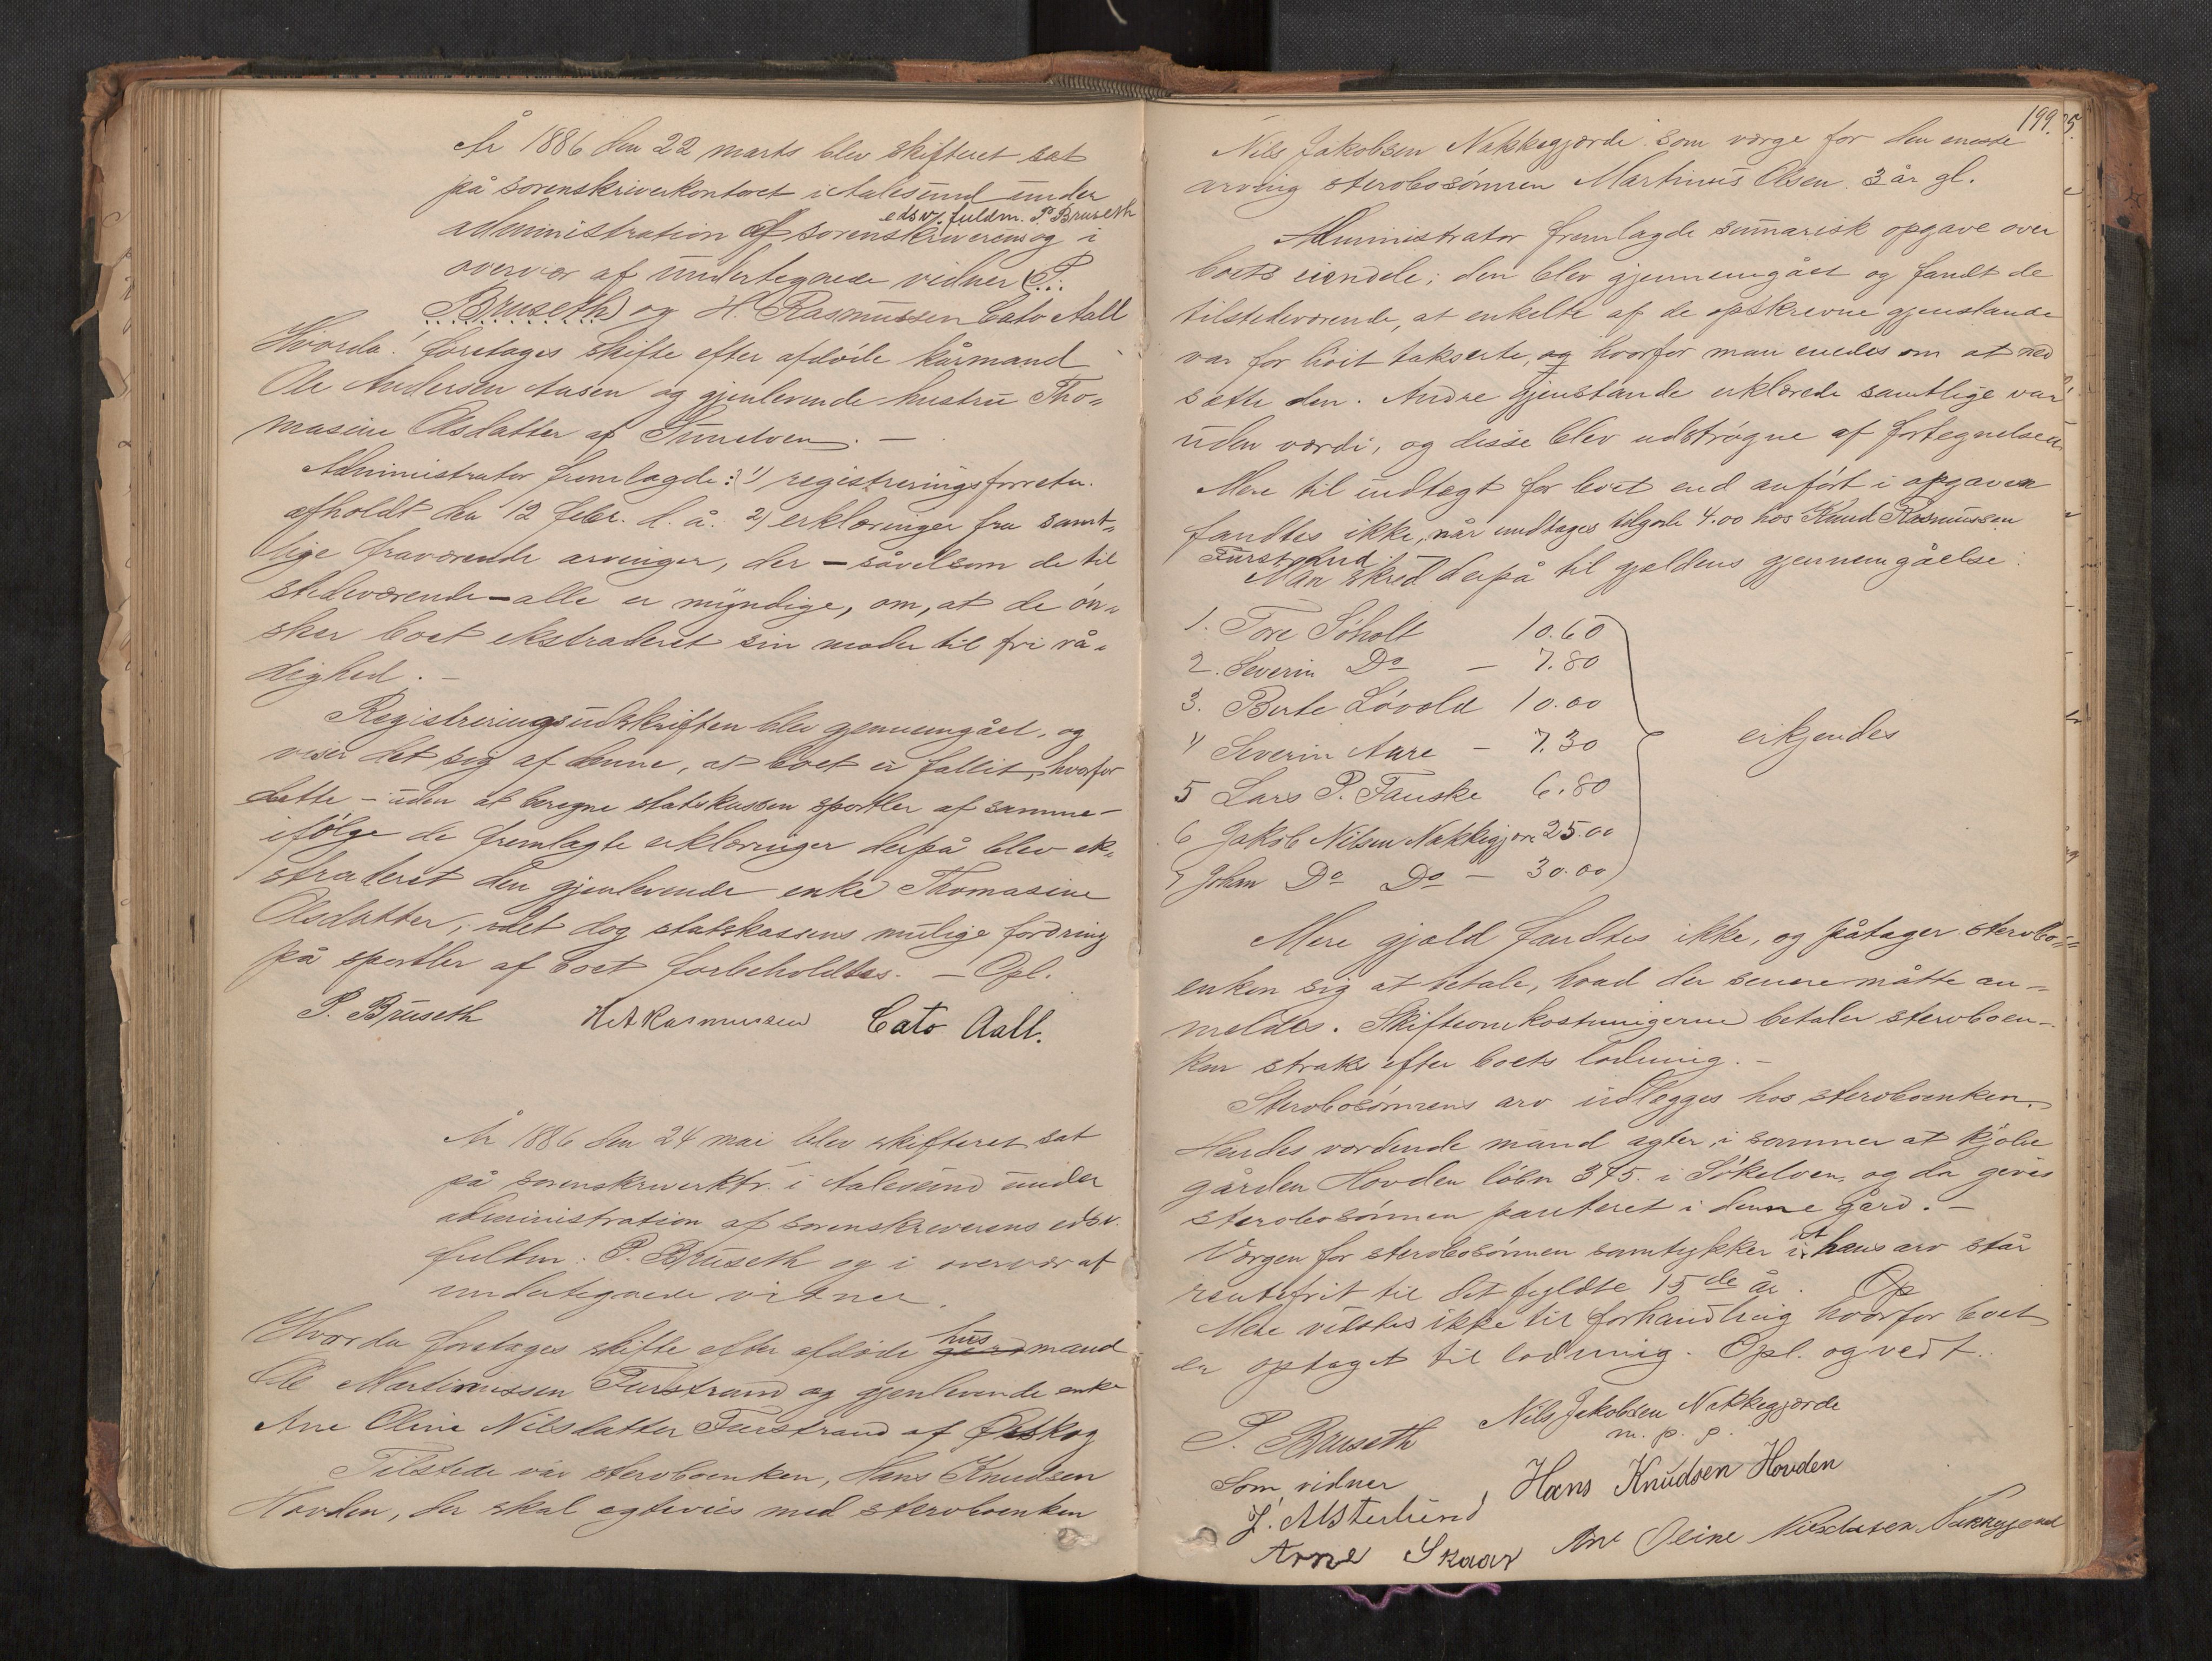 År 1886 den 22 marts blev skifteret sat
på sorenskriverkontoret i Aalesund under
edsv. fuldm. P Bruseth
administration af sorenskriverens og i
overvær af undertegnede vidner (P.
Bruseth) og H. Rasmussen Cato Aall
Hvorda foretages skifte efter afdøde kårmand
Ole Andersen Aasen og gjenlevende hustru Tho-
masine Olsdatter af Sunelven. —
Administrator fremlagde: 1) registreringsforretn.
afholdt den 12 febr. d. å. 2) erklæringer fra samt-
lige fraværende arvinger, der – såvelsom de til
stedeværende – alle er myndige, om, at de øn-
sker boet ekstraderet sin moder til fri rå-
dighed. —
Registreringsudskriften blev gennemgået, og
viser det sig af denne, at boet er fallit, hvorfor
dette – uden at beregne statskassen sportler af samme –
ifølge de fremlagte erklæringer derpå blev ek-
straderet den gjenlevende enke Thomasine
Olsdatter, idet dog statskassens mulige fordring
på sportler af boet forbeholdtes. — Opl.
P. Bruseth H A Rasmussen Cato Aall.
År 1886 den 24 mai blev skifteret sat
på sorenskriverktr. i Aalesund under
administration af sorenskriverens edsv.
fuldm. P. Bruseth og i overvær af
undertegnede vidner.
Hvorda foretages skifte efter afdøde hus
gårdmand
Ole Martinussen Furstrand og gjenlevende enke
Ane Oline Nilsdatter Furstrand af Ørskog
Tilstede var sterboenken, Hans Knudsen
Hovden, der skal egtevies med sterboenken
199.
Nils Jakobsen Nakkegjærde som værge for den eneste
arving sterbosønnen Martinus Olsen 3 år gl.
Administrator fremlagde summarisk opgave over
boets eiendele; den blev gjennemgået og fandt de
tilstedeværende, at enkelte af de opskrevne gjenstande
var for høit takserte, og hvorfor man enedes om at ned
sætte den. Andre gjenstande erklærede samtlige var
uden værdi, og disse blev udstrøgne af fortegnelsen
Mere til indtægt for boet end anført i opgaven
fandtes ikke, når undtages tilgode 4.00 hos Knud Rasmussen
Furstrand
Man skred derpå til gjældens gjennemgåelse:
1. Tore Søholt 10.60
2. Severin Do — 7.80
3. Berte Løvold 10.00
4 Severin Aure — 7.30
5 Lars P. Fauske 6.80
6 Jakob Nilsen Nakkegjære 25.00
7 Johan Do Do — 30.00
erkjendes
Mere gjæld fandtes ikke, og påtager sterbo-
enken sig at betale, hvad der senere måtte an-
meldes. Skifteomkostningerne betaler sterboen-
ken straks efter boets lodning. —
Sterbosønnens arv udlægges hos sterboenken.
Hendes vordende mand agter i sommer at kjøbe
gården Hovden løbn 375. i Søkelven, og da gives
sterbosønnen panteret i denne gård. —
Værgen for sterbosønnen samtykker i at hans arv står
rentefrit til det fyldte 15de år. Op
Mere vidstes ikke til forhandling hvorfor boet
er optaget til lodning. Opl. og vedt.
P. Bruseth Nils Jakobsen Nakkegjærde
m. p. p.
Som vidner Hans Knudsen Hovden
J. Alsterlund
Arne Skaar Ane Oline Nilsdaten Nakkegjerd